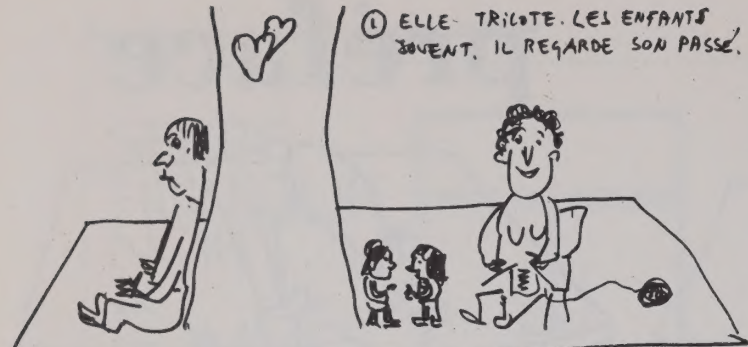 ① ELLE TRICOTE. LES ENFANTS
JOUENT. IL REGARDE SON PASSÉ.